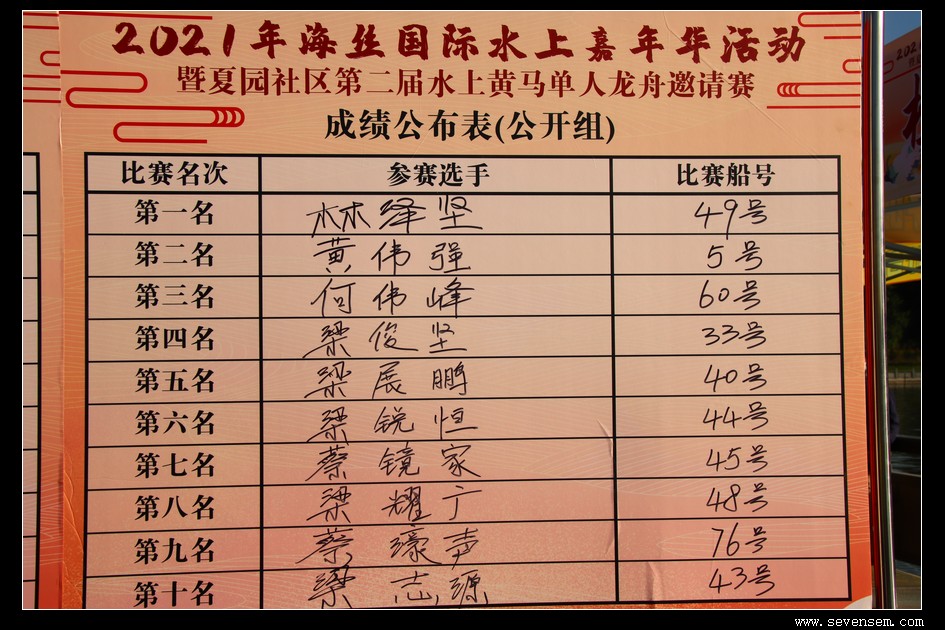 2021年海丝国际水上嘉年华活动
暨夏园社区第二届水上黄马单人龙舟邀请赛
成绩公布表(公开组)
比赛名次 参赛选手 比赛船号
第一名 林绎坚 49号
第二名 黄伟强 5号
第三名 何伟峰 60号
第四名 梁俊坚 33号
第五名 梁展鹏 40号
第六名 梁锐恒 44号
第七名 蔡镜家 45号
第八名 梁耀广 48号
第九名 蔡濠声 76号
第十名 梁志源 43号
www.sevensem.com